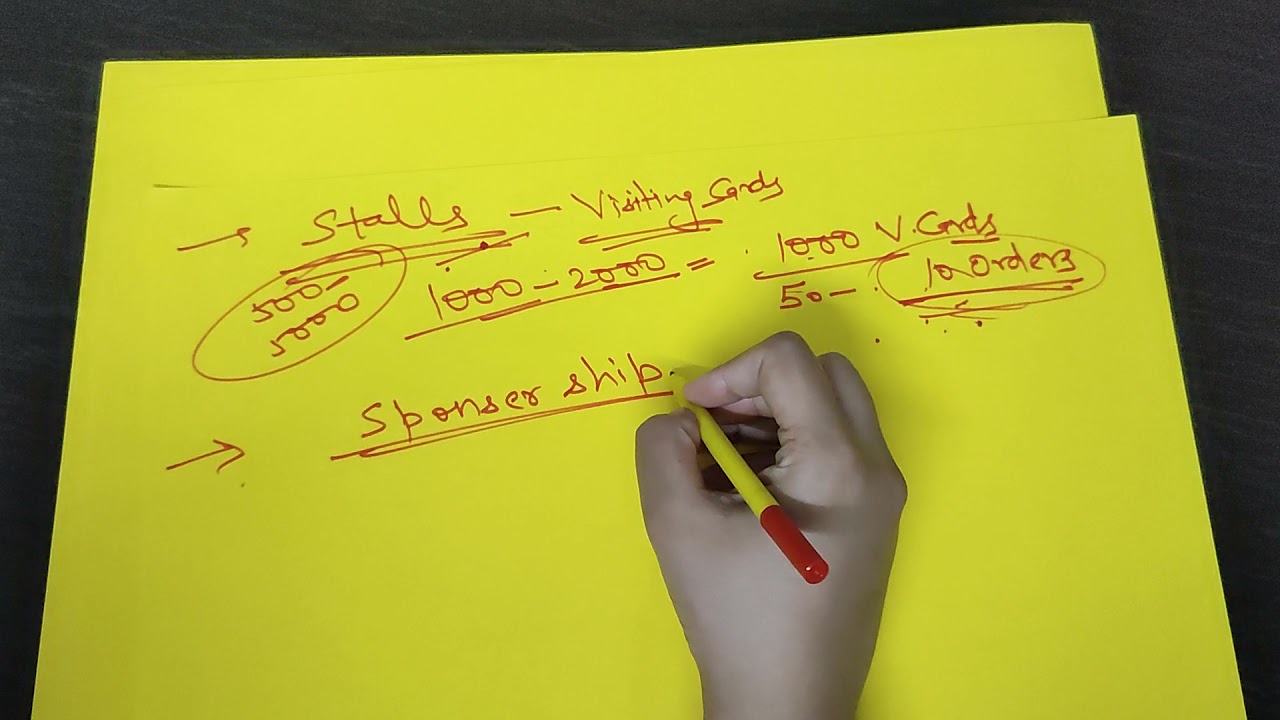 → Stalls — Visiting Cards
500-
5000
1000 - 2000 = 1000 V. Cards
50 - 10 Orders
→ Sponser ship